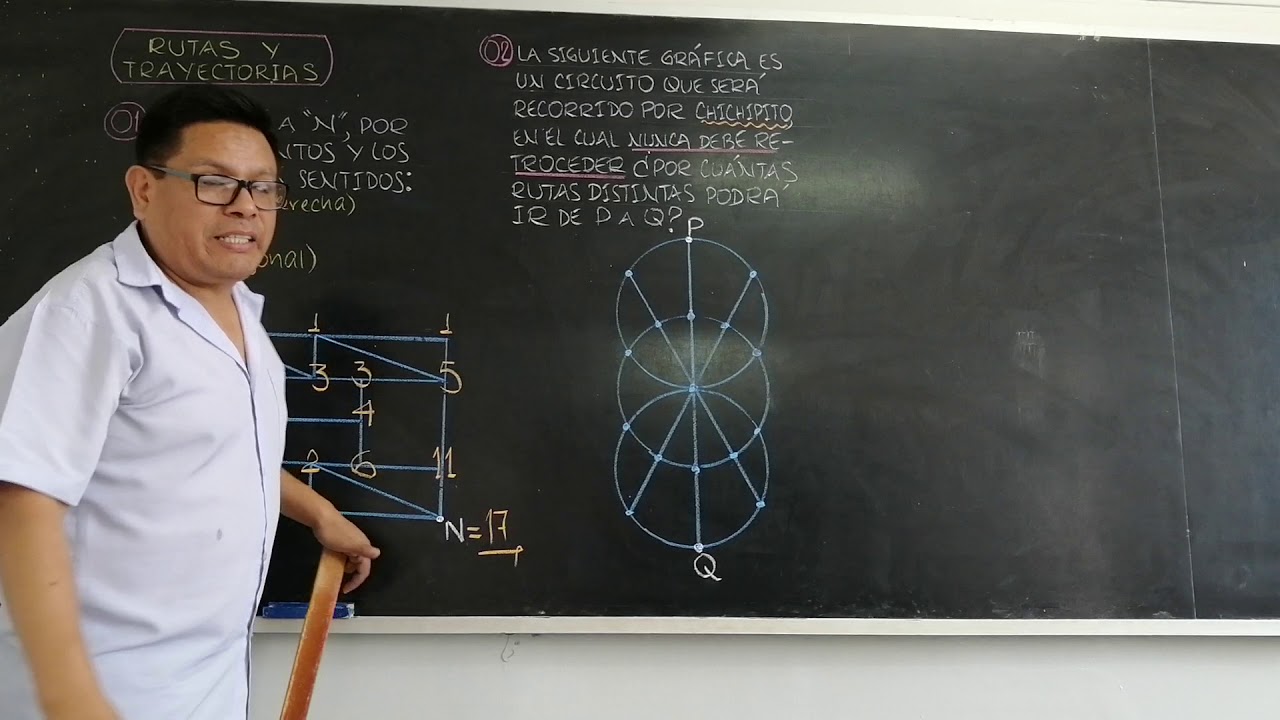 RUTAS Y
TRAYECTORIAS
01
A "N", POR
NTOS Y LOS
SENTIDOS:
erecha)
onal)
1 1
3 3 5
4
2 6 11
N=17
02 LA SIGUIENTE GRÁFICA ES
UN CIRCUITO QUE SERÁ
RECORRIDO POR CHICHIPITO,
EN EL CUAL NUNCA DEBE RE-
TROCEDER ¿POR CUÁNTAS
RUTAS DISTINTAS PODRÁ
IR DE P A Q?
P
Q